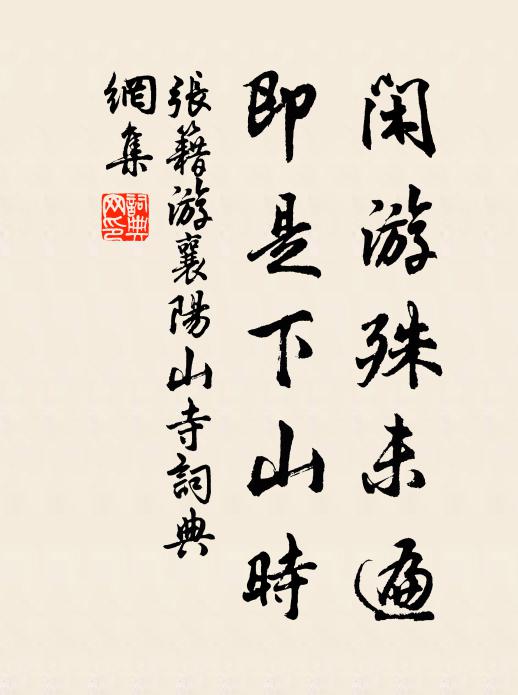 閑游殊未遍
即是下山時
張籍游襄陽山寺詞典
網集
詞典
网印